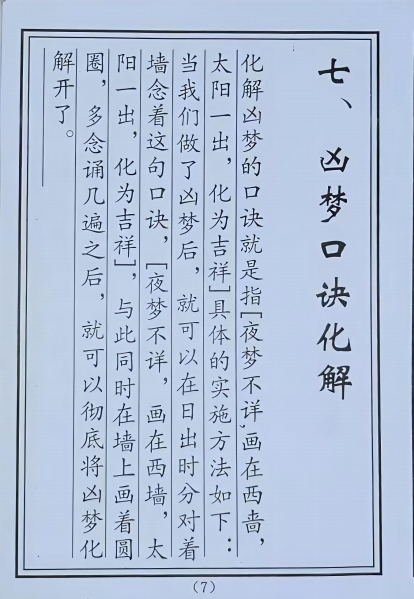 七、凶梦口诀化解
化解凶梦的口诀就是指[夜梦不详,画在西啬，
太阳一出，化为吉祥]具体的实施方法如下：
当我们做了凶梦后，就可以在日出时分对着
墙念着这句口诀，[夜梦不详，画在西墙，太
阳一出，化为吉祥]，与此同时在墙上画着圆
圈，多念诵几遍之后，就可以彻底将凶梦化
解开了。
（7）